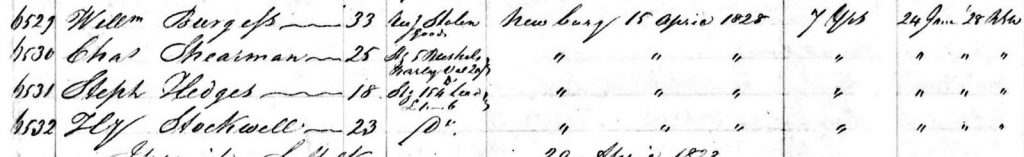 6529 Willm Burgess 33 recg Stolen goods Newburg 15 April 1828 7 Yrs 24 June '28
6530 Chas Shearman 25 Stg 5 Bushels Barley " " " " " " "
6531 Steph Hedges 18 Stg 15 lb Lead " " " " " " "
6532 Hy Stockwell 23 Do. " " " " " " "